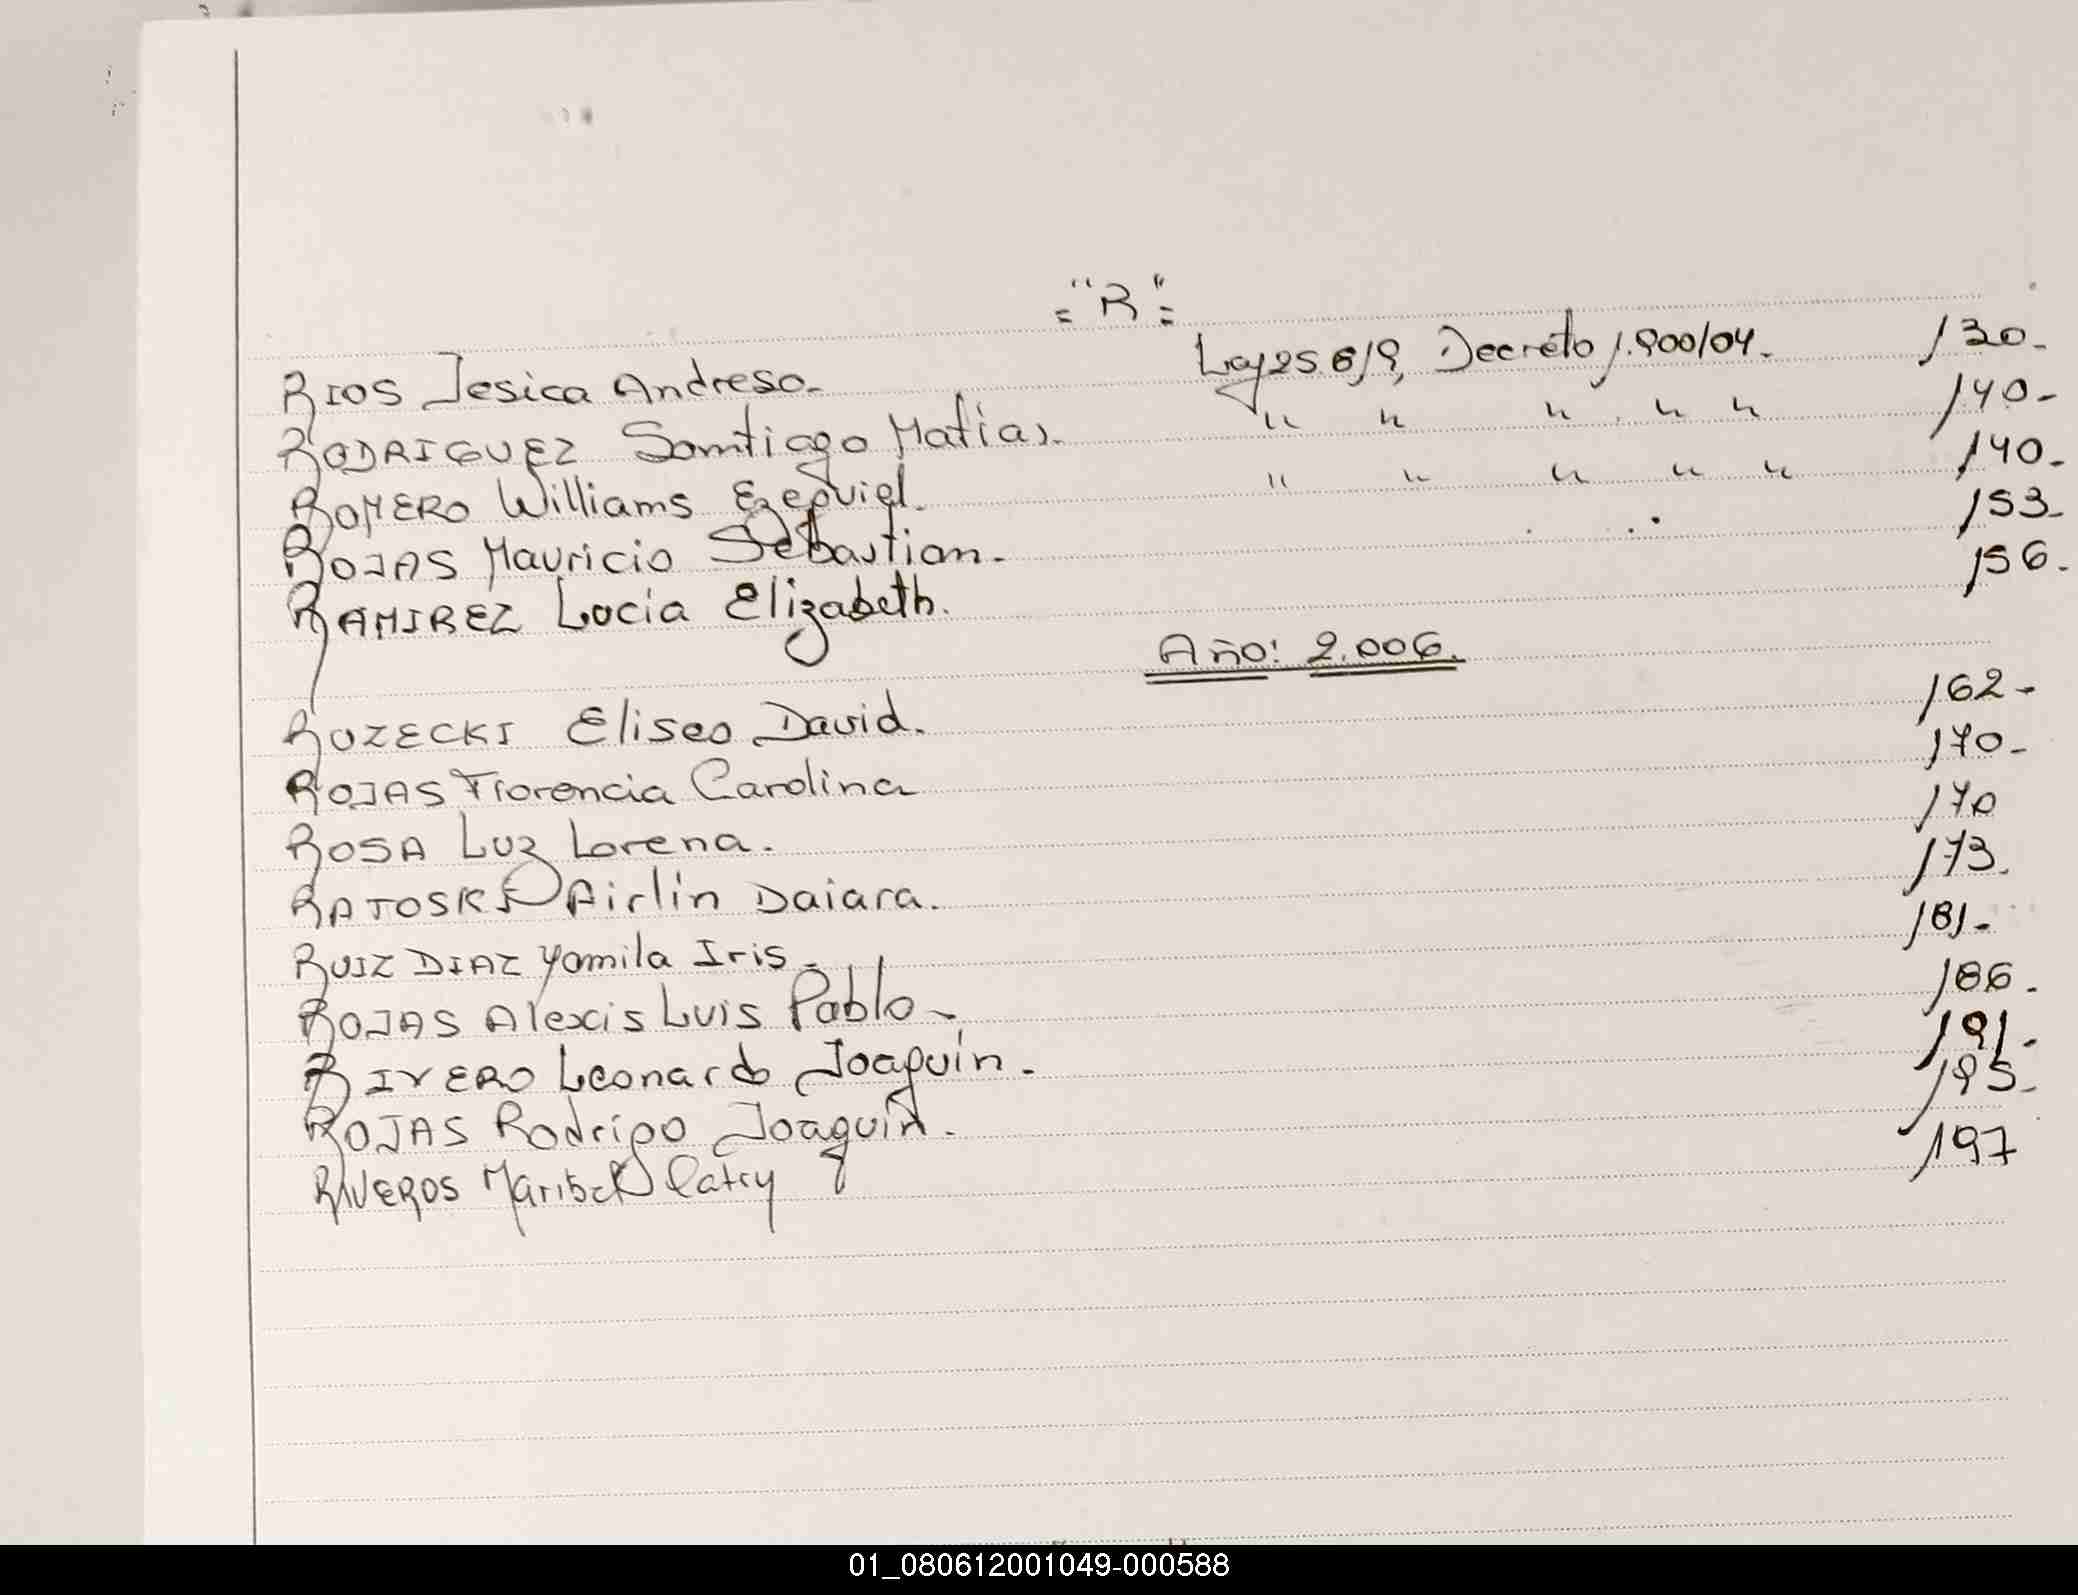 = "R" =
RIOS Jesica Andresa. Ley 25 819, Decreto 1.900/04. 130.
RODRIGUEZ Santiago Matías. " " " " " 140-
ROMERO Williams Ezequiel. " " " " " 140-
ROJAS Mauricio Sebastian. 153-
RAMIREZ Lucia Elizabeth. 156.
Año: 2.006.
ROZECKI Eliseo David. 162-
ROJAS Florencia Carolina 170-
ROSA Luz Lorena. 170
RATOSKI Airlin Daiara. 173.
RUIZ DIAZ Yamila Iris - 181-
ROJAS Alexis Luis Pablo - 186.
RIVERO Leonardo Joaquín. 191.
ROJAS Rodrigo Joaquín. 195-
RIVEROS Maribel Patry 197
01_080612001049-000588